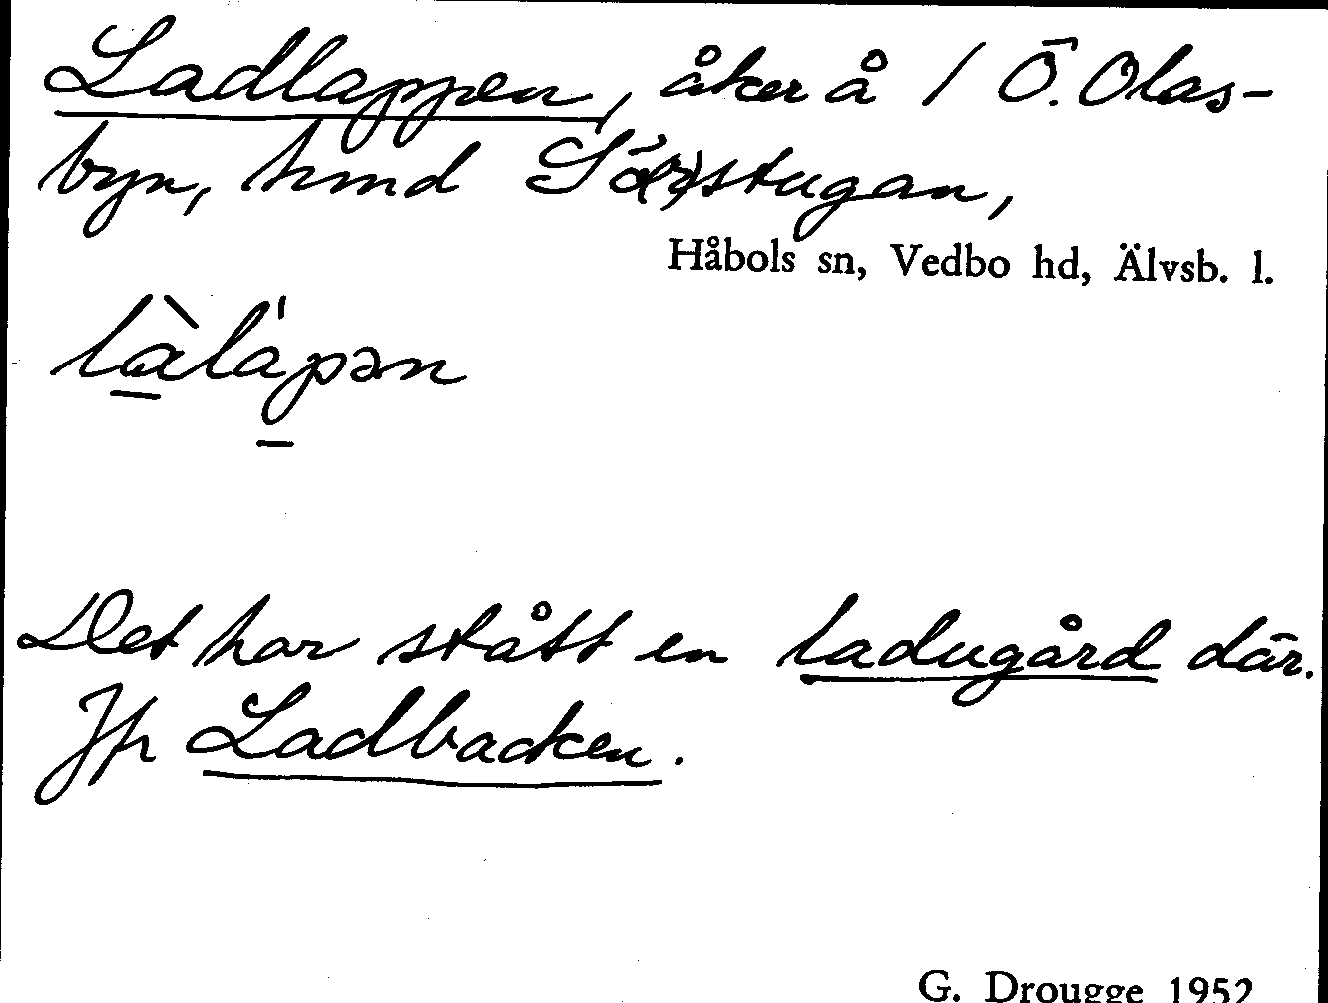 Ladlappen, åker å 1 Ö. Olas-
byn, hmd Sö(r)stugan,
Håbols sn, Vedbo hd, Älvsb. l.
làlápən
Det har stått en ladugård där.
Jfr Ladbacken.
G. Drougge 1952